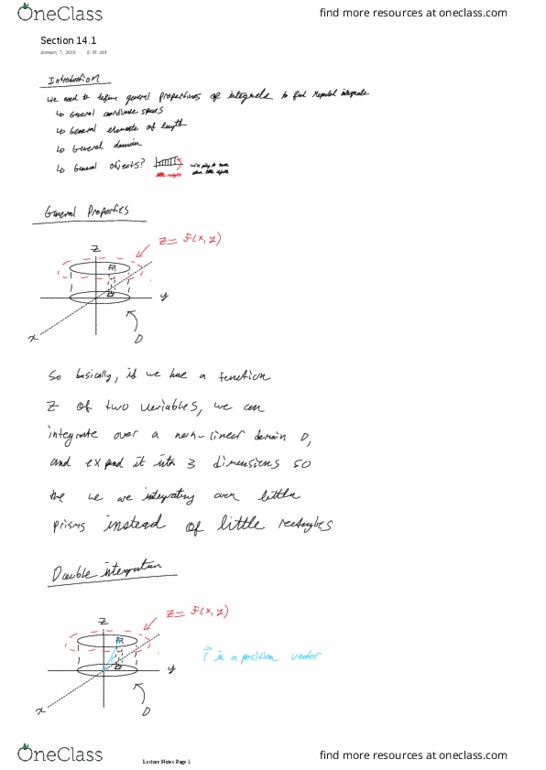 OneClass
find more resources at oneclass.com
Section 14.1
January 7, 2018
Introduction
we need to define general properties of integrals to find repeated integrals
↳ General coordinate spaces
↳ General elements of length
↳ General domain
↳ General objects?
little
General Properties
z = F(x,y)
z
y
x
D
So basically, if we have a function
z of two variables, we can
integrate over a non-linear domain D,
and expand it into 3 dimensions so
the we are integrating over little
prisms instead of little rectangles
Double integration
z = F(x,y)
z
r is a position vector
y
x
D
OneClass
Lecture Notes Page 1
find more resources at oneclass.com